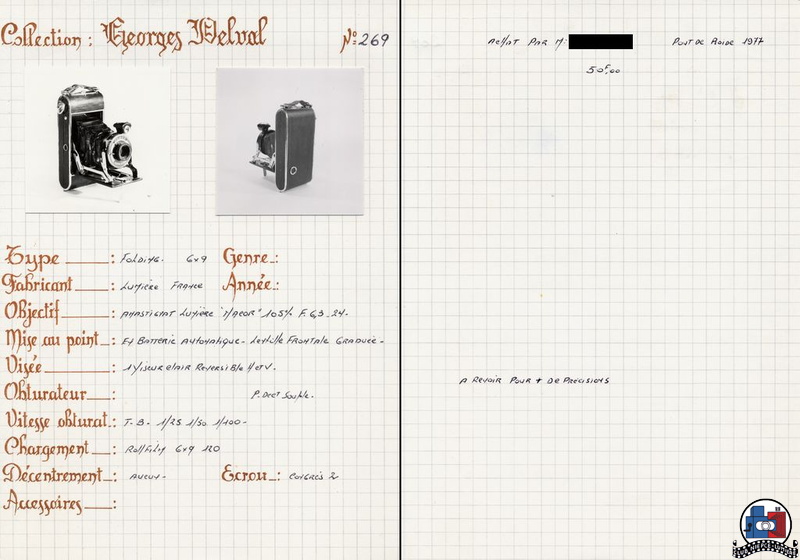 Collection : Georges Delval Nº 269
Type : Folding. 6x9 Genre :
Fabricant : Lumière France Année :
Objectif : Anastigmat Lumière "Nacor" 105% F. 6,3 _ 24 -
Mise au point : Et Batterie Automatique - Lentille Frontale Graduée -
Visée : 1 Viseur clair Reversible H et V.
Obturateur : P. Dect Souple.
Vitesse obturat. : T. B. 1/25 1/50 1/100 -
Chargement : Rollfilm 6x9 120
Décentrement : Aucun - Ecrou : Congrès 2
Accessoires :
Achat Par Mr Pont de Roide 1977
50F,00
A Revoir Pour + De Précisions